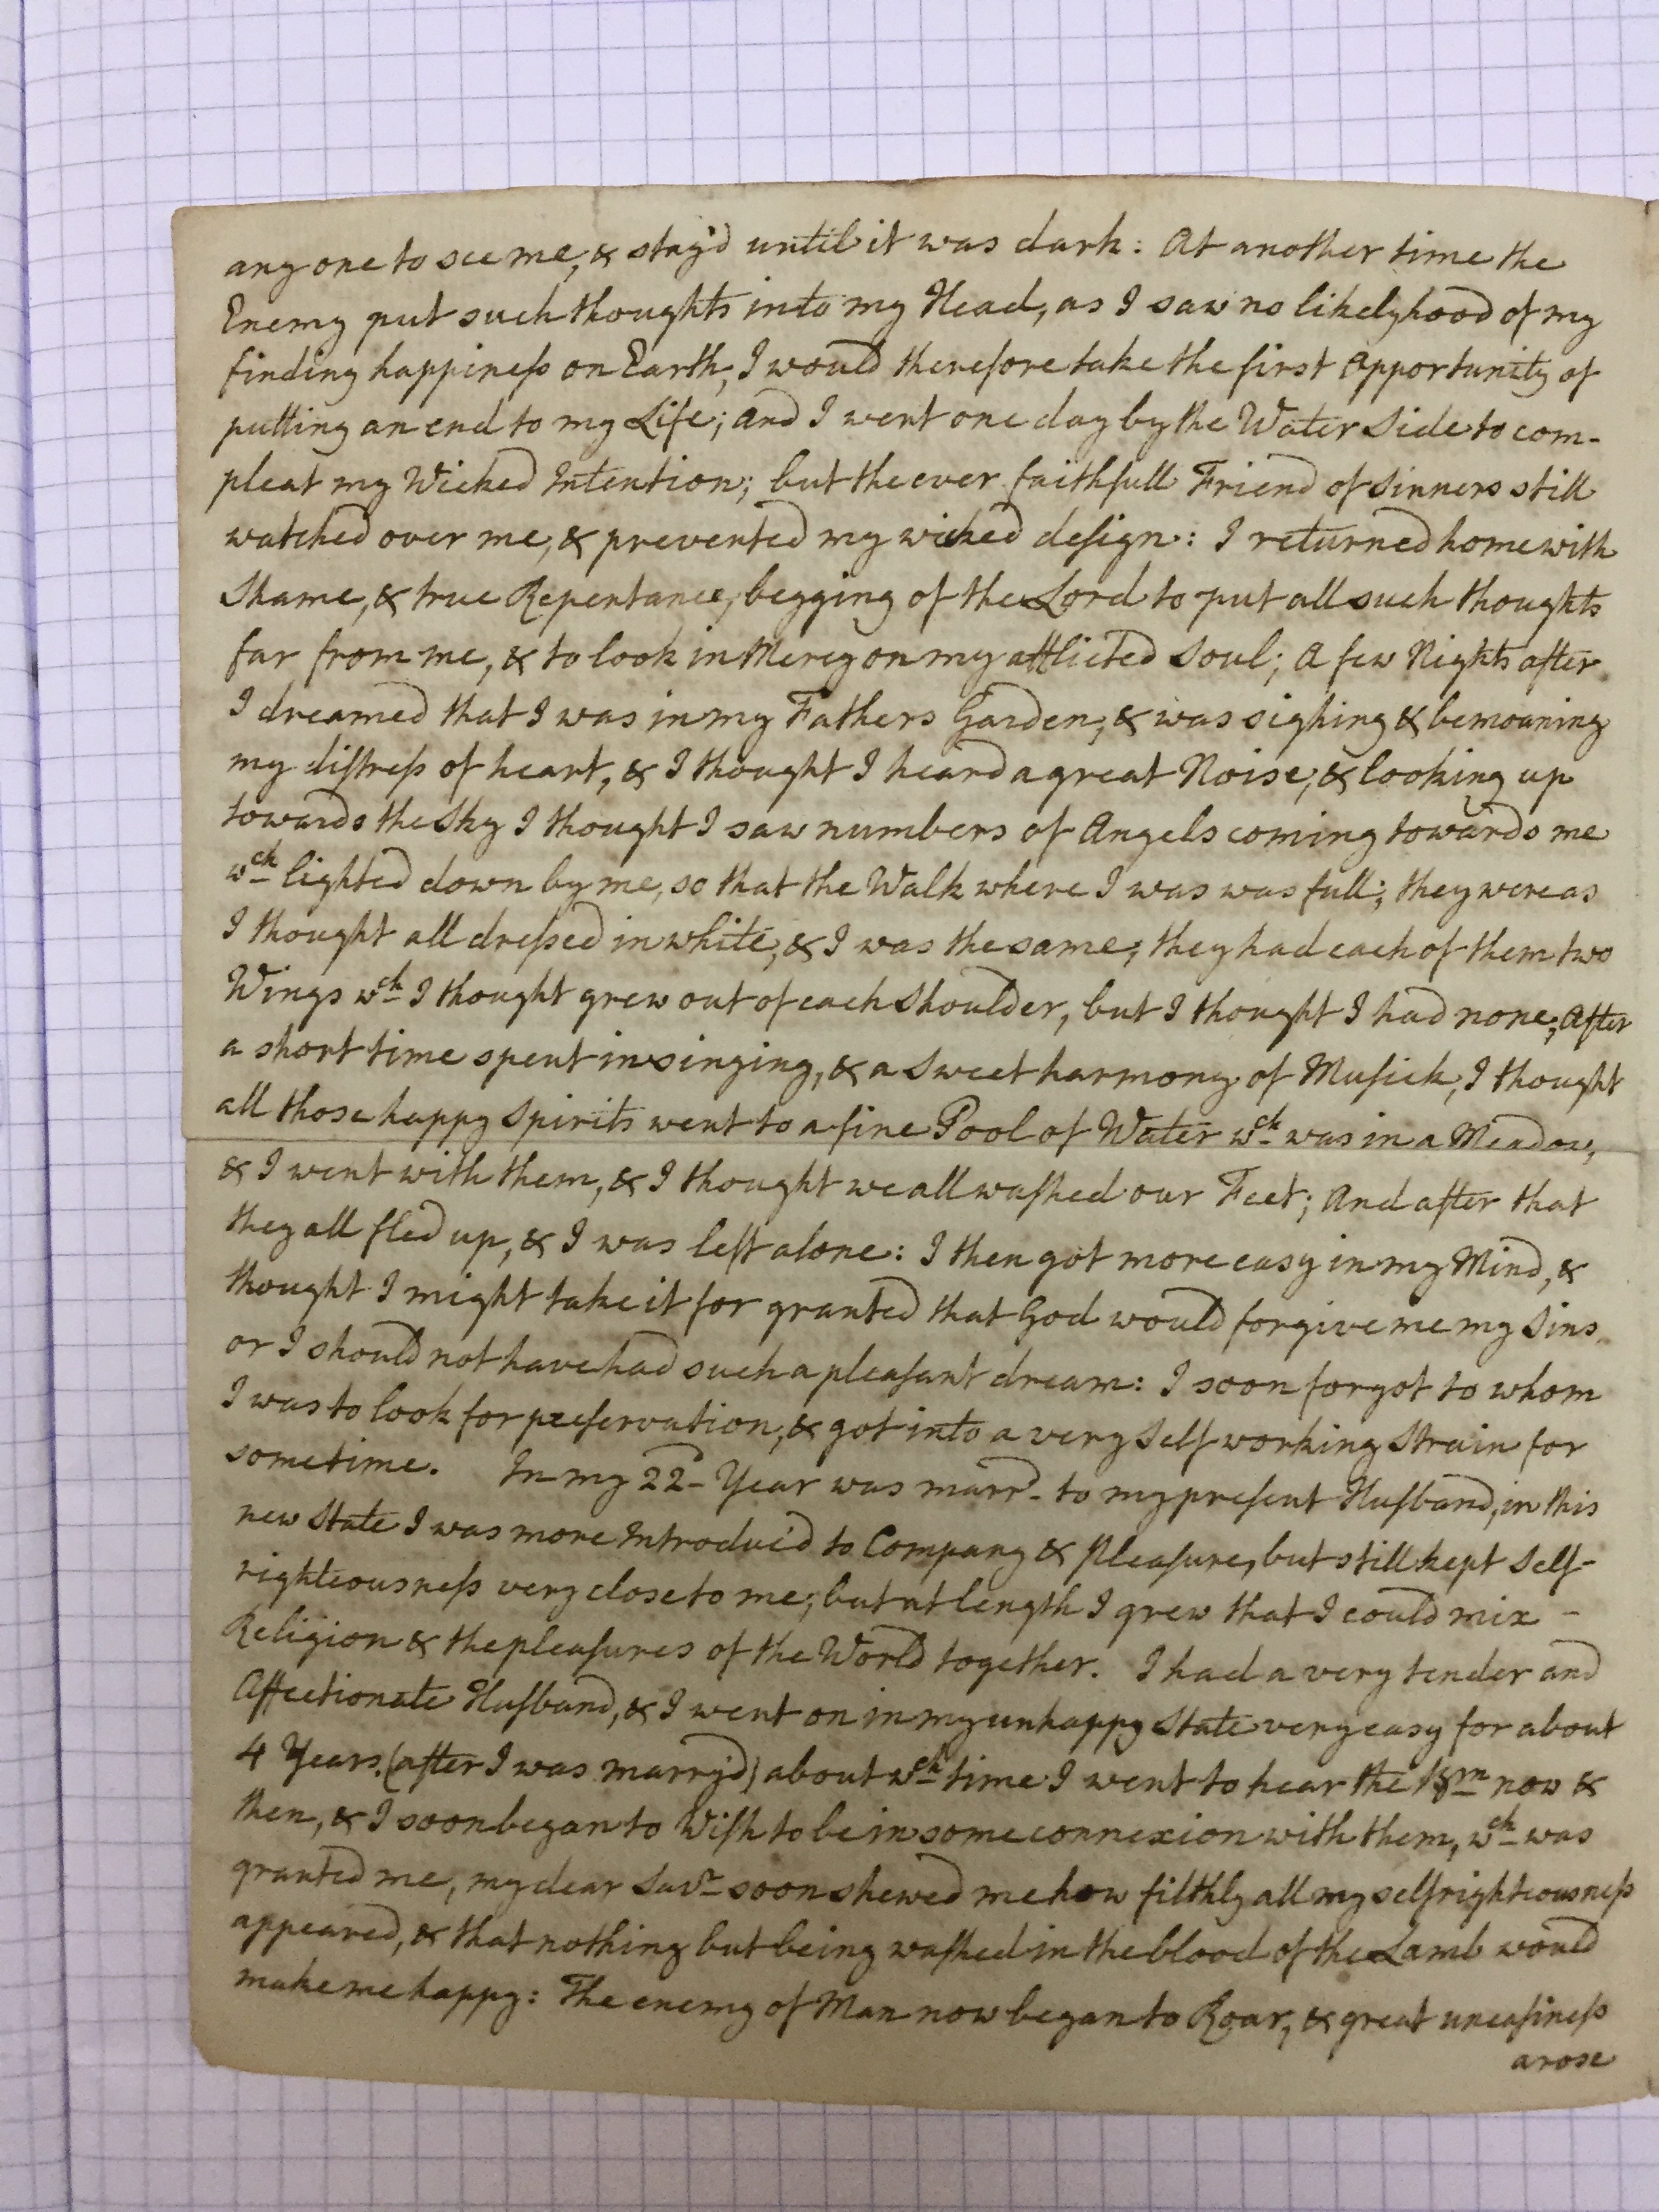 any one to see me, & stay'd until it was dark: At another time the
Enemy put such thoughts into my Head, as I saw no likelyhood of my
finding happiness on Earth, I would therefore take the first Apportunity of
putting an end to my Life; and I went one day by the Water Side to com-
pleat my Wicked Intention; but the ever faithfull Friend of Sinners still
watched over me, & prevented my wicked design: I returned home with
Shame, & true Repentance, begging of the Lord to put all such thoughts
far from me, & to look in Mercy on my afflicted Soul; A few Nights after
I dreamed that I was in my Fathers Garden, & was sighing & bemoaning
my distress of heart, & I thought I heard a great Noise, & looking up
towards the Sky I thought I saw numbers of Angels coming towards me
wch lighted down by me, so that the Walk where I was was full; they were as
I thought all dressed in white, & I was the same; they had each of them two
Wings wch I thought grew out of each Shoulder, but I thought I had none; After
a short time spent in singing, & a Sweet harmony of Musick, I thought
all those happy Spirits went to a fine Pool of Water wch was in a Meadow,
& I went with them, & I thought we all washed our Feet; And after that
they all fled up, & I was left alone: I then got more easy in my Mind, &
thought I might take it for granted that God would forgive me my Sins
or I should not have had such a pleasant dream: I soon forgot to whom
I was to look for preservation, & got into a very Self working Strain for
sometime. In my 22d Year was marrd to my present Husband, in this
new State I was more Introduc'd to Company & Pleasure, but still kept Self-
righteousness very close to me; but at length I grew that I could mix -
Religion & the pleasures of the World together. I had a very tender and
Affectionate Husband, & I went on in my unhappy State very easy for about
4 Years. (after I was marry'd) about wch time I went to hear the Brn now &
then, & I soon began to Wish to be in some connexion with them, wch was
granted me, my dear Savr soon shewed me how filthly all my selfrighteousness
appeared, & that nothing but being washed in the blood of the Lamb would
make me happy: The enemy of Man now began to Roar, & great uneasiness
arose